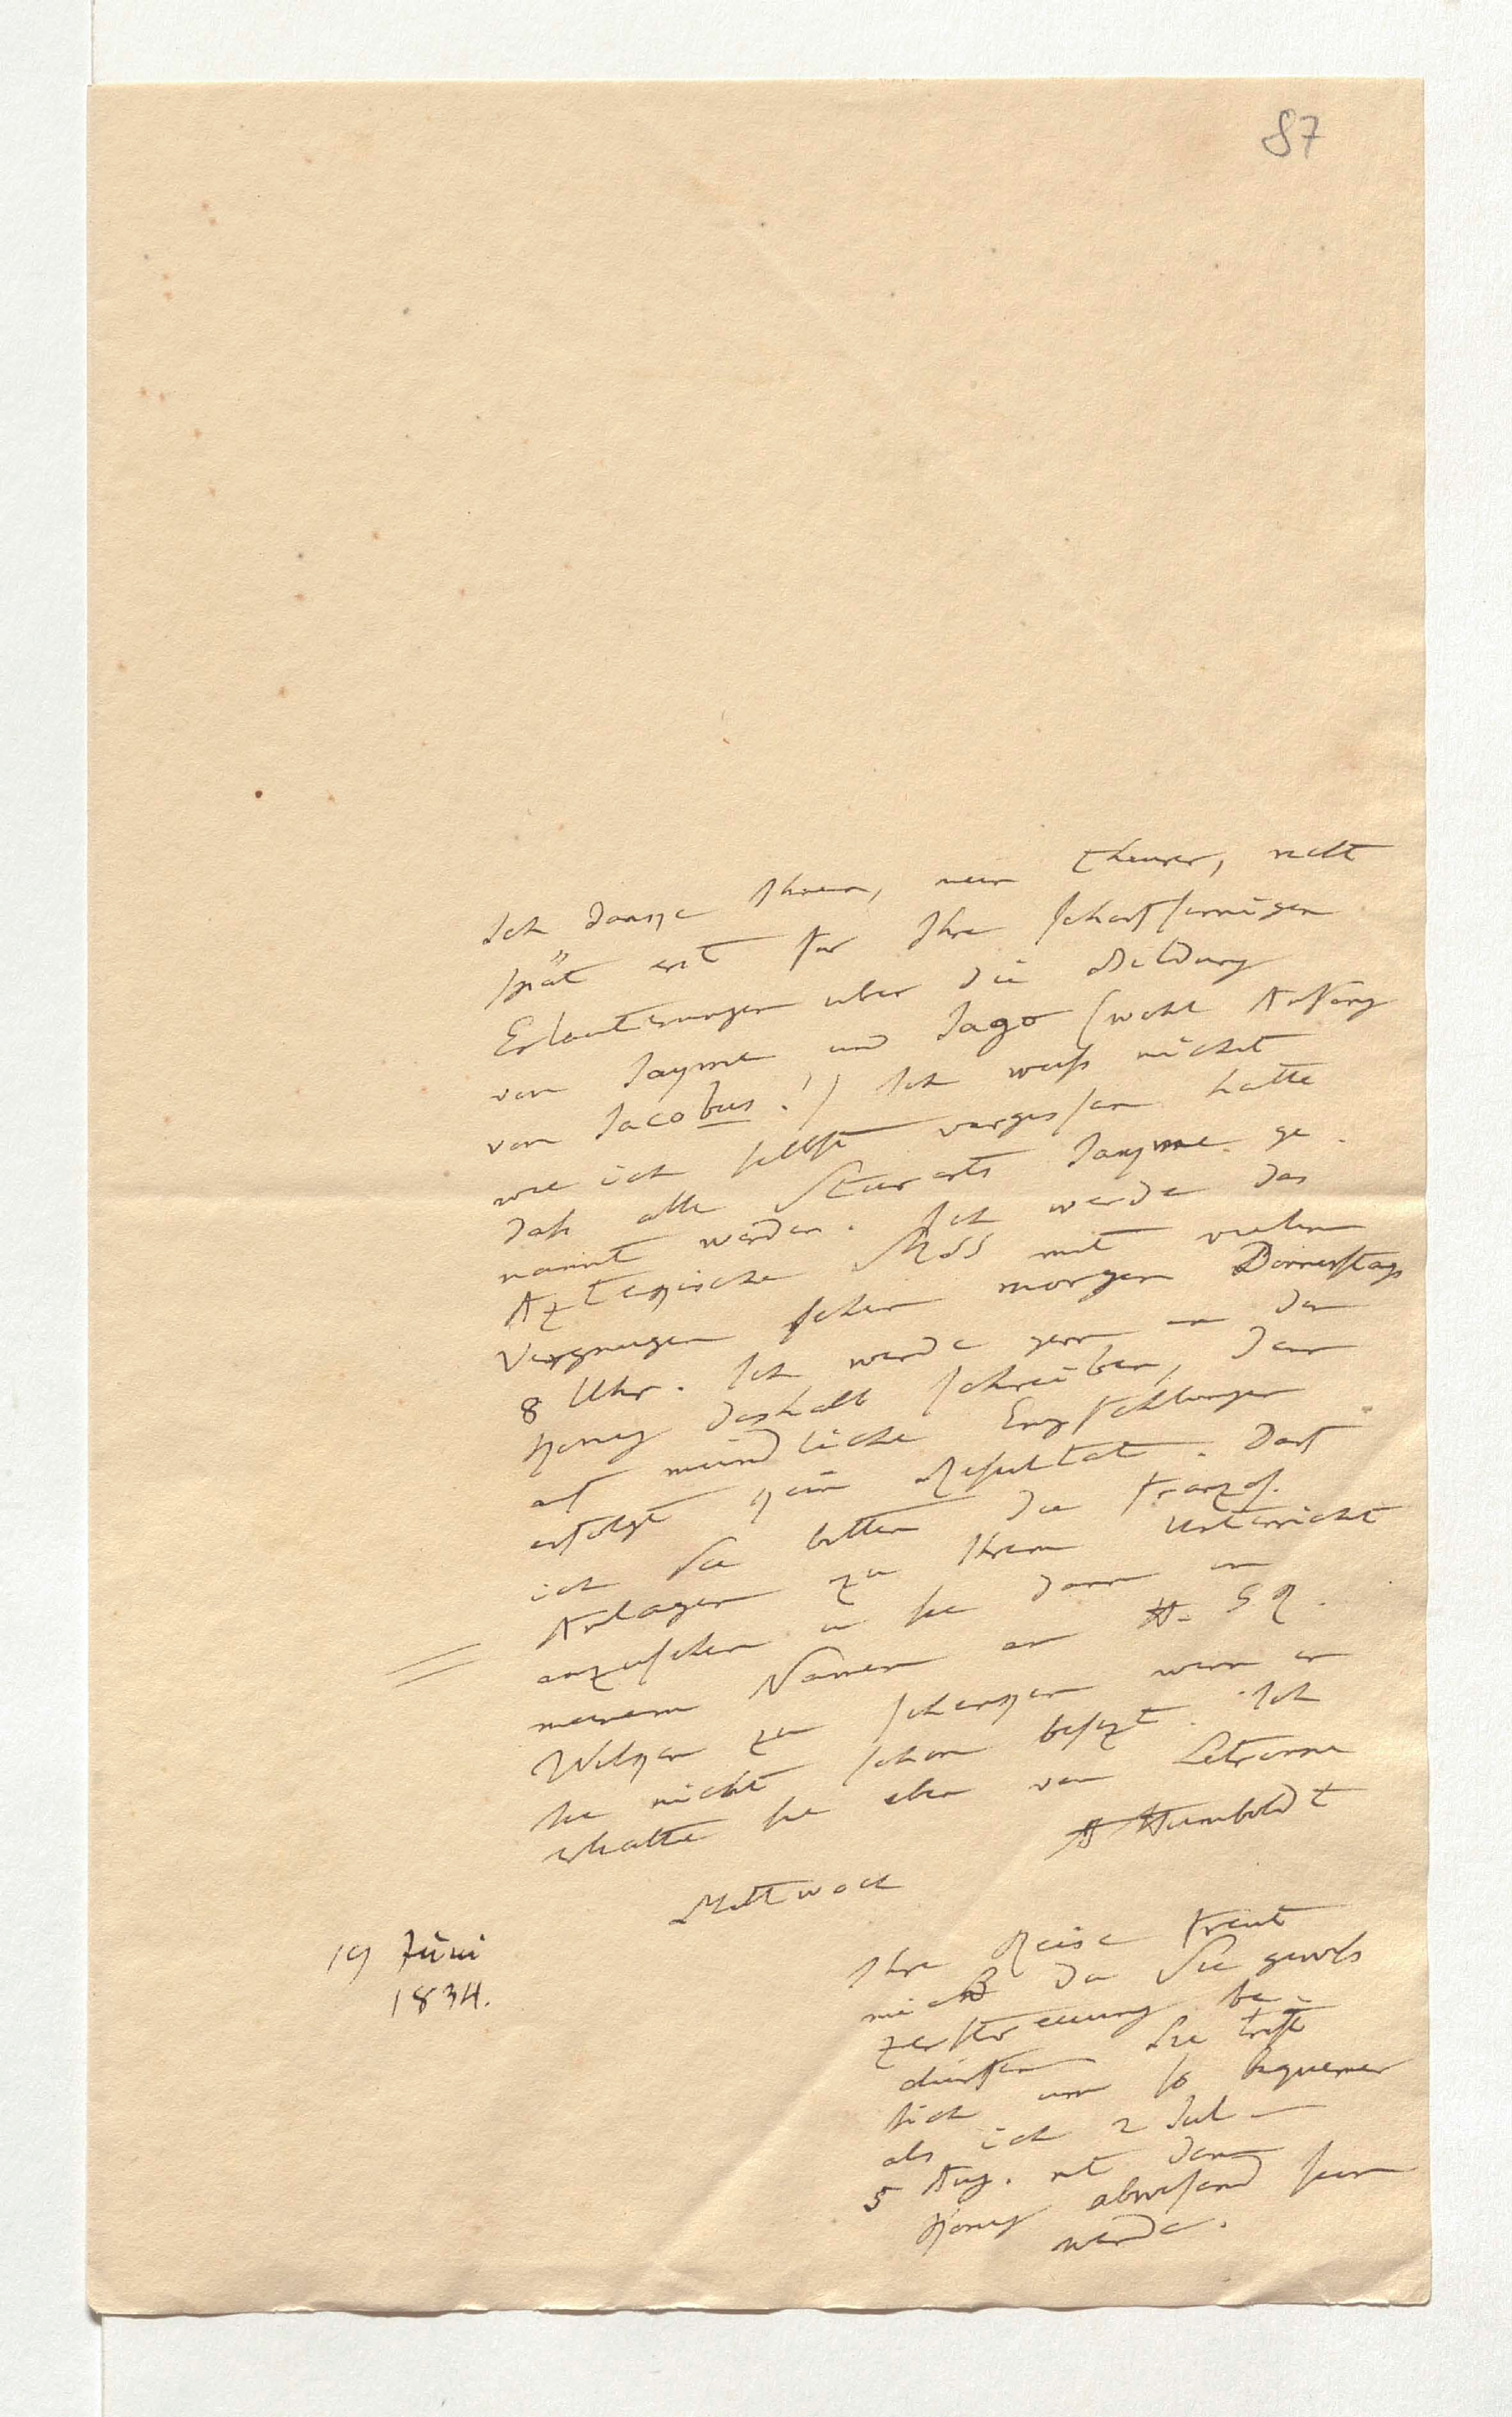 87
Ich danke Ihnen, mein theurer, recht
spät erst für Ihre scharfsinnigen
Erlauterungen uber die Bildung
von Jayme und Jago (wohl Anfang
von Jacobus!) Ich weiß nicht
wie ich selbst vergessen hatte
daß alle Stuarts Jayme ge-
nannt werden. Ich werde das
Aztekische MSS mit vielem
Vergnugen sehen morgen Donnerstags
8 Uhr. Ich werde gern an den
König deshalb schreiben, denn
auf mündliche Empfehlungen
erfolgt kein Resultat. Darf
ich Sie bitten die französ.
Anlagen zu Ihrem Unterricht
anzusehen u sie dann in
meinem Namen an H.
Wilken zu schenken wenn er
sie nicht schon besizt. Ich
erhalte sie eben von Letronne
A Humboldt
Mittwoch
19 Juni
1834.
Ihre Reise freut
mich da Sie gewiß
Zerstreuung be-
dürfen. Sie trift
sich um so bequemer
als ich 2 Jul –
5 Aug. mit dem
König abwesend sein
werde.